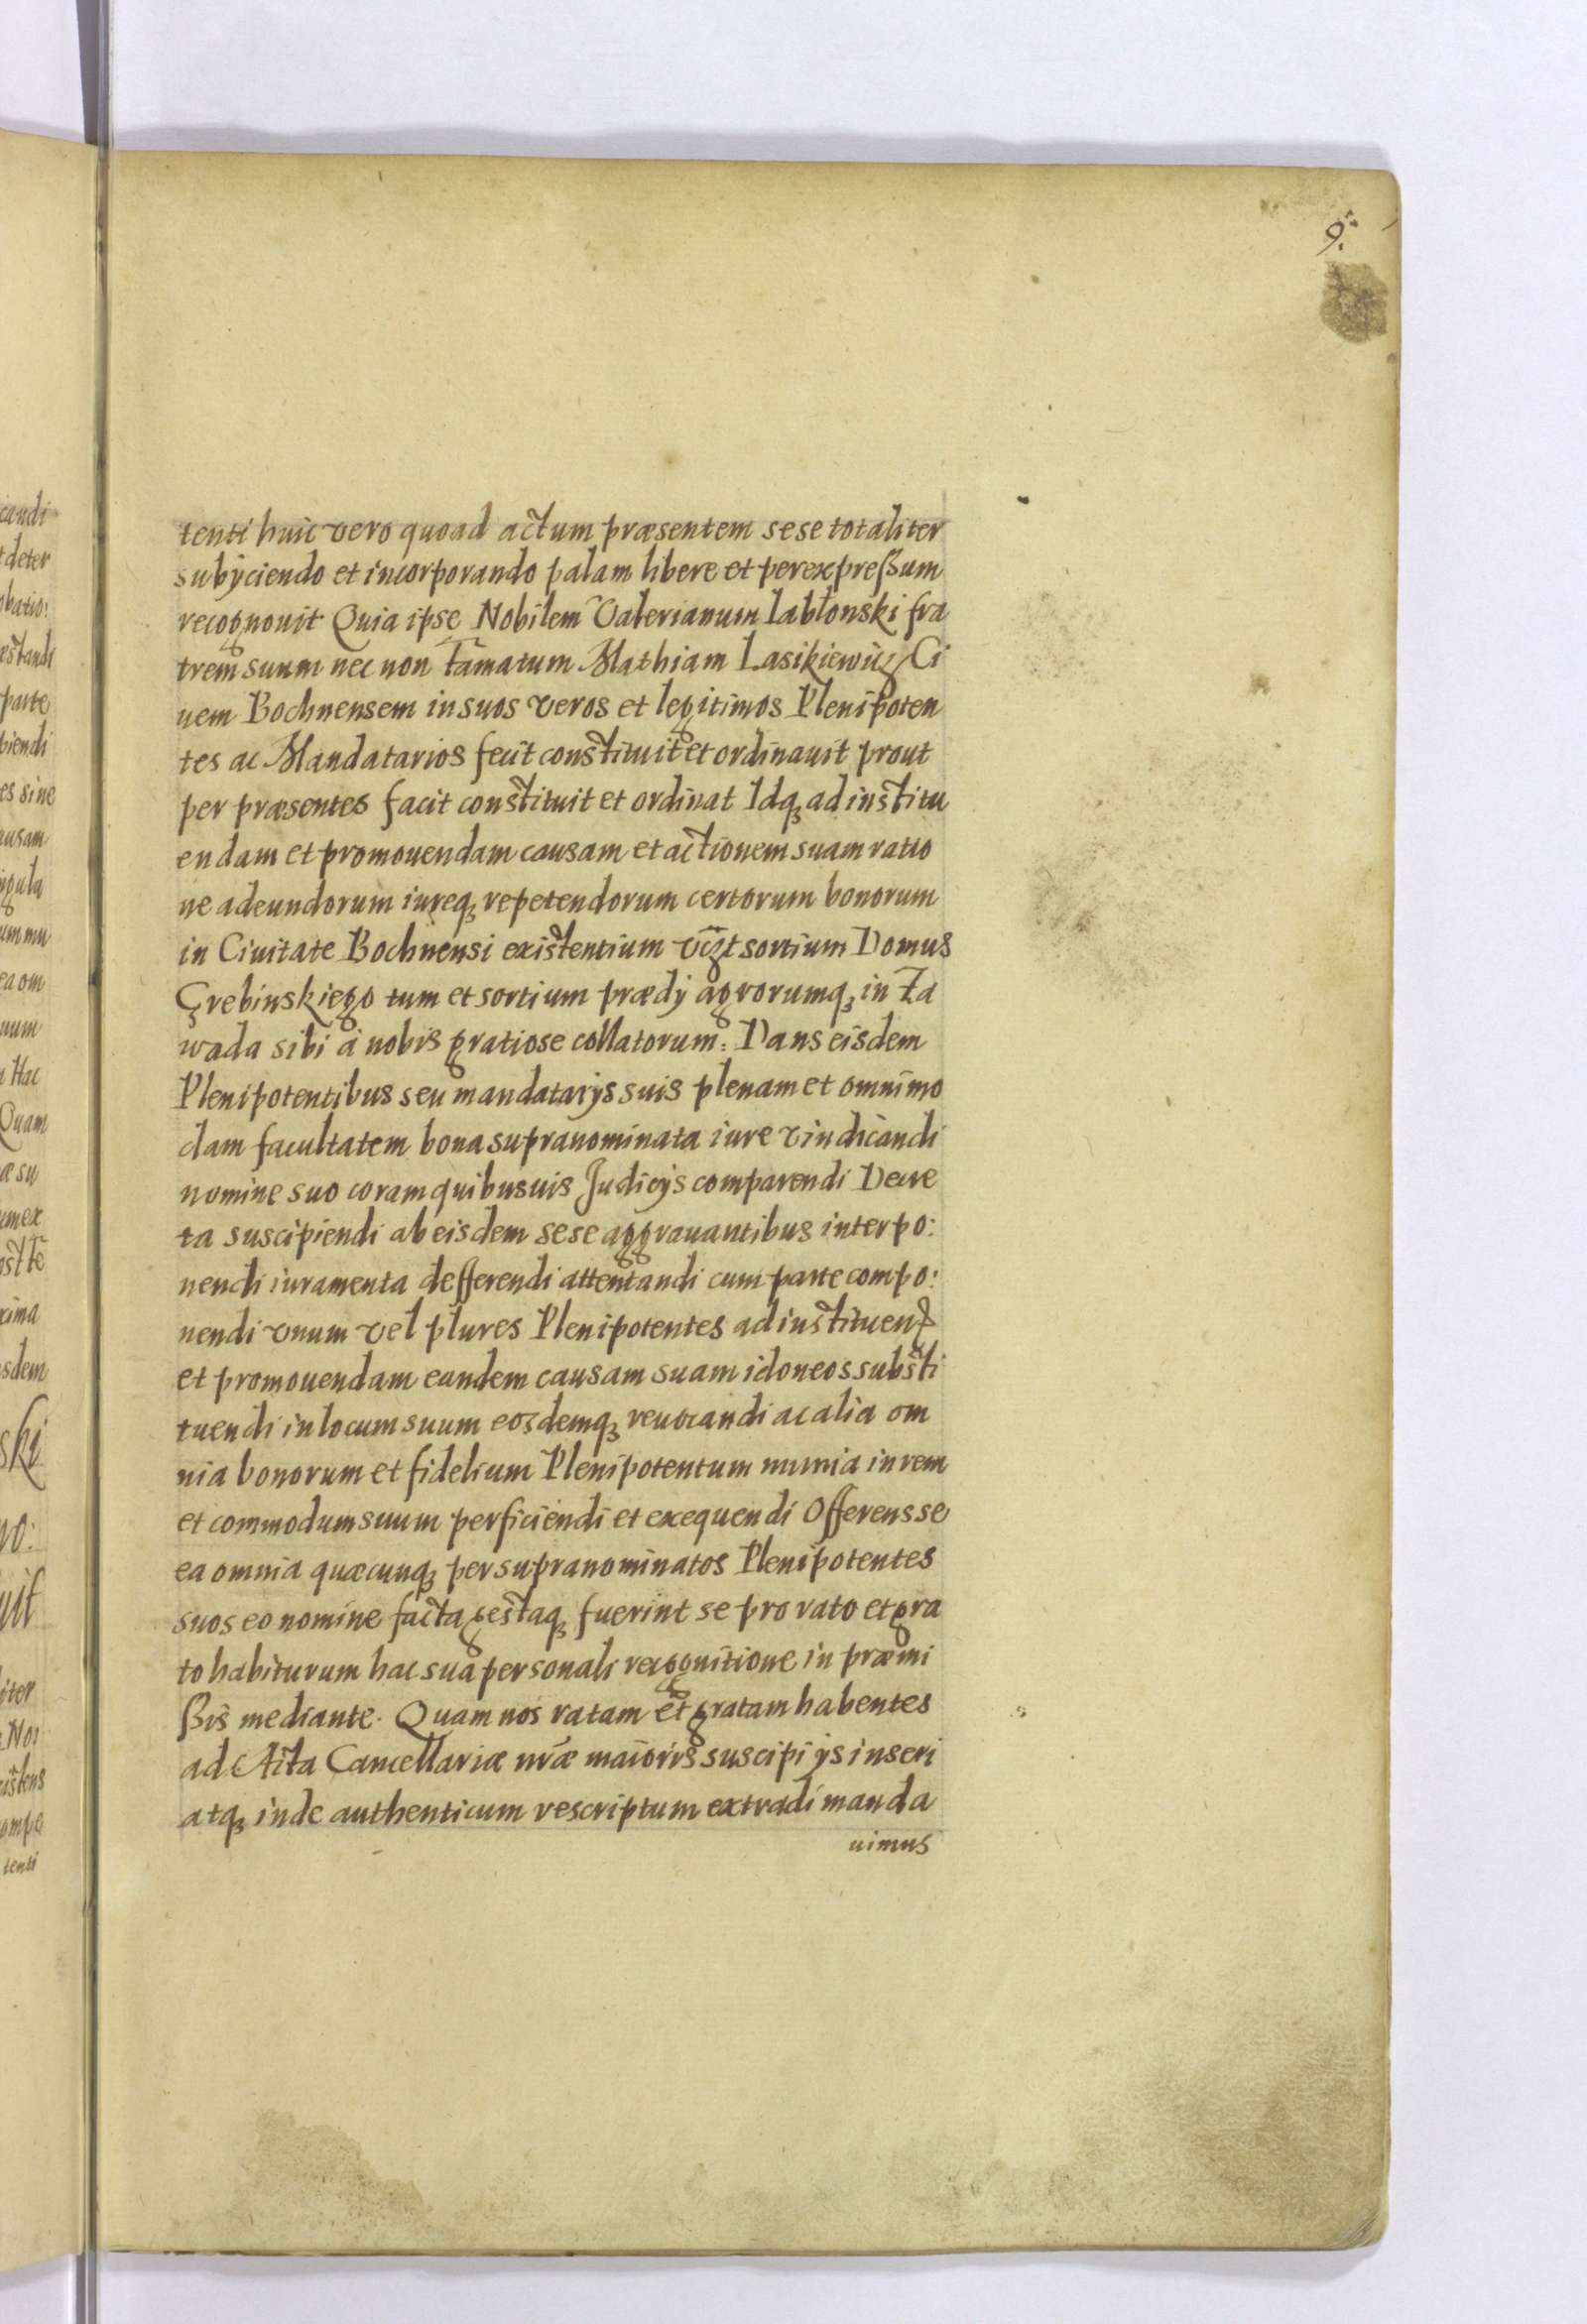 9.
tenti huic vero quoad actum præsentem sese totaliter
subÿciendo et incorporando palam libere et per expreßum
recognouit Quia ipse Nobilem Valerianum Iabłonski fra
trem suum nec non fāmatum Mathiam Lasikiewicz Ci
uem Bochnensem in suos veros et legitimos Plenipoten
tes ac Mandatarios fecit constituit et ordinauit prout
per præsentes facit constituit et ordinat Idqꝫ ad institu
endam et promouendam causam et actionem suam ratio
ne adeundorum iureqꝫ repetendorum certorum bonorum
in Ciuitate Bochnensi existentium vꝫt sortium Domus
Grebinskiego tum et sortium prædÿ agrorumqꝫ in Za
wada sibi à nobis gratiose collatorum: Dans eisdem
Plenipotentibus seu mandatarÿs suis plenam et omnimo
dam facultatem bona supranominata iure vindicandi
nomine suo coram quibusuis Judicÿs comparendi Decre
ta suscipiendi ab eisdem sese aggrauantibus interpo:
nendi iuramenta defferendi attentandi cum parte compo:
nendi vnum vel plures Plenipotentes ad instituend
et promouendam eandem causam suam idoneos substi
tuendi in locum suum eosdemqꝫ reuocandi ac alia om
nia bonorum et fidelium Plenipotentum munia in rem
et commodum suum perficiendi et exequendi Offerens se
ea omnia quæcunqꝫ per supranominatos Plenipotentes
suos eo nomine facta gestaqꝫ fuerint se pro rato et gra
to habiturum hac sua personali recognitione in præmi
ßis mediante. Quam nos ratam et gratam habentes
ad Acta Cancellariæ nr̄æ maioris suscipi ÿs inseri
atqꝫ inde authenticum rescriptum extradi manda
uimus